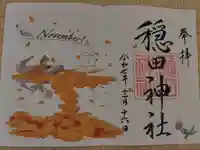 奉拝
穏田神社
令和七年十一月十六日
November!